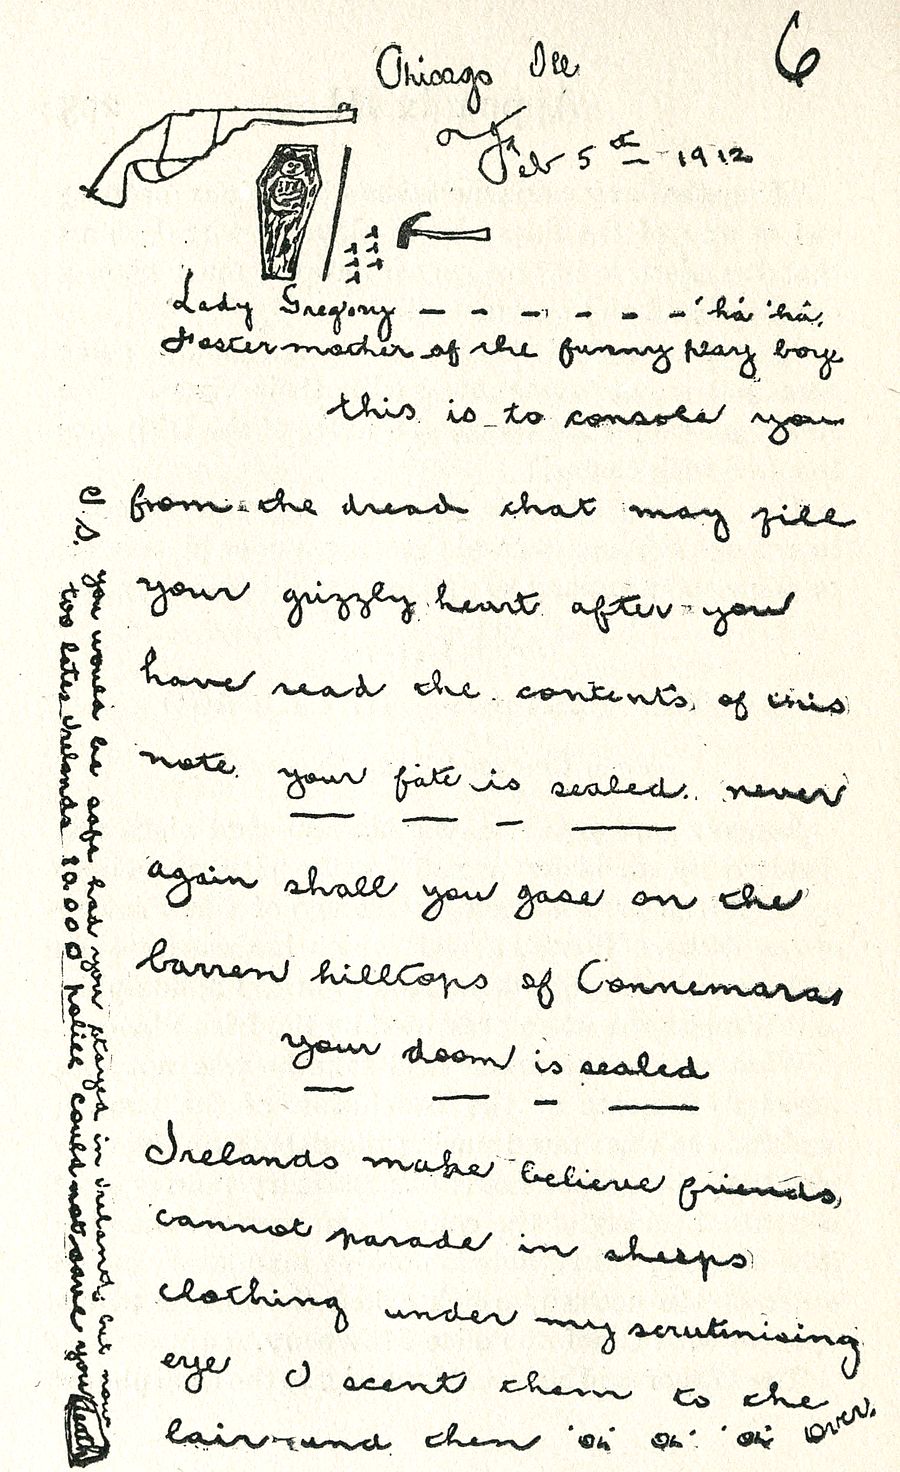 6
Chicago Ill
Feb 5th 1912
Lady Gregory — - - - - - 'há 'há,
Foster mother of the funny play boy
this is to console you
from the dread that may fill
your grizzly heart after you
have read the contents of this
note. your fate is sealed. never
again shall you gase on the
barren hilltops of Connemara
your doom is sealed
Irelands make believe friends,
cannot parade in sheeps
clothing under my scrutinising
eye I scent them to the
lair and then
over.
P.S. you would be safe had you stayed in Ireland; but now
too late; Irelands 10.000 police could not save you
Death